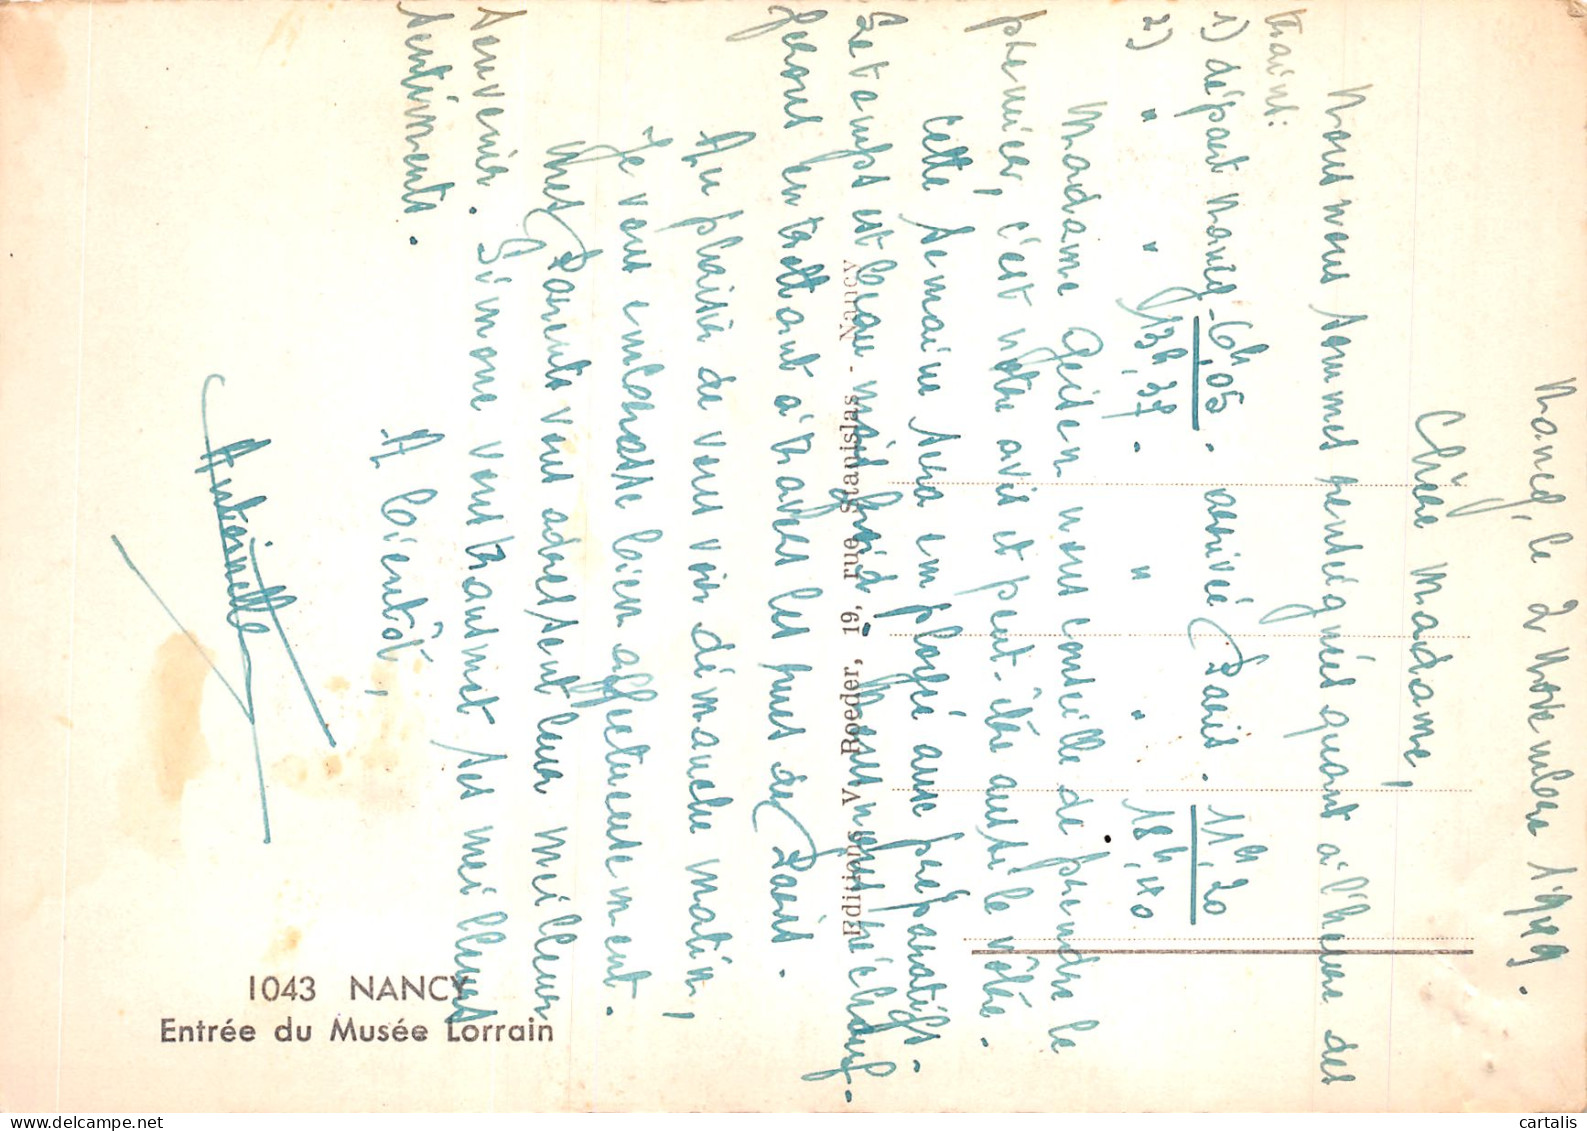 Nancy, le 2 Novembre 1949.
Chère Madame,
Nous nous sommes renseignées quant à l'heure des
trains:
1) départ Nancy - 6h,05. arrivée Paris. 11h,20
2) " " 13h,37. " " 18h,40
Madame Geiten nous conseille de prendre le
premier, c'est notre avis et peut-être aussi le vôtre.
Cette semaine sera employée aux préparatifs.
Le temps est beau mais froid. Nous nous réchauf-
ferons en trottant à travers les rues de Paris.
Au plaisir de vous voir dimanche matin,
je vous embrasse bien affectueusement.
Mes Parents vous adressent leur meilleur
souvenir. Simone vous transmet ses meilleurs
sentiments.
A bientôt,
Antoinette
Editions V. Roeder, 19, rue Stanislas - Nancy
1043 NANCY
Entrée du Musée Lorrain
cartalis